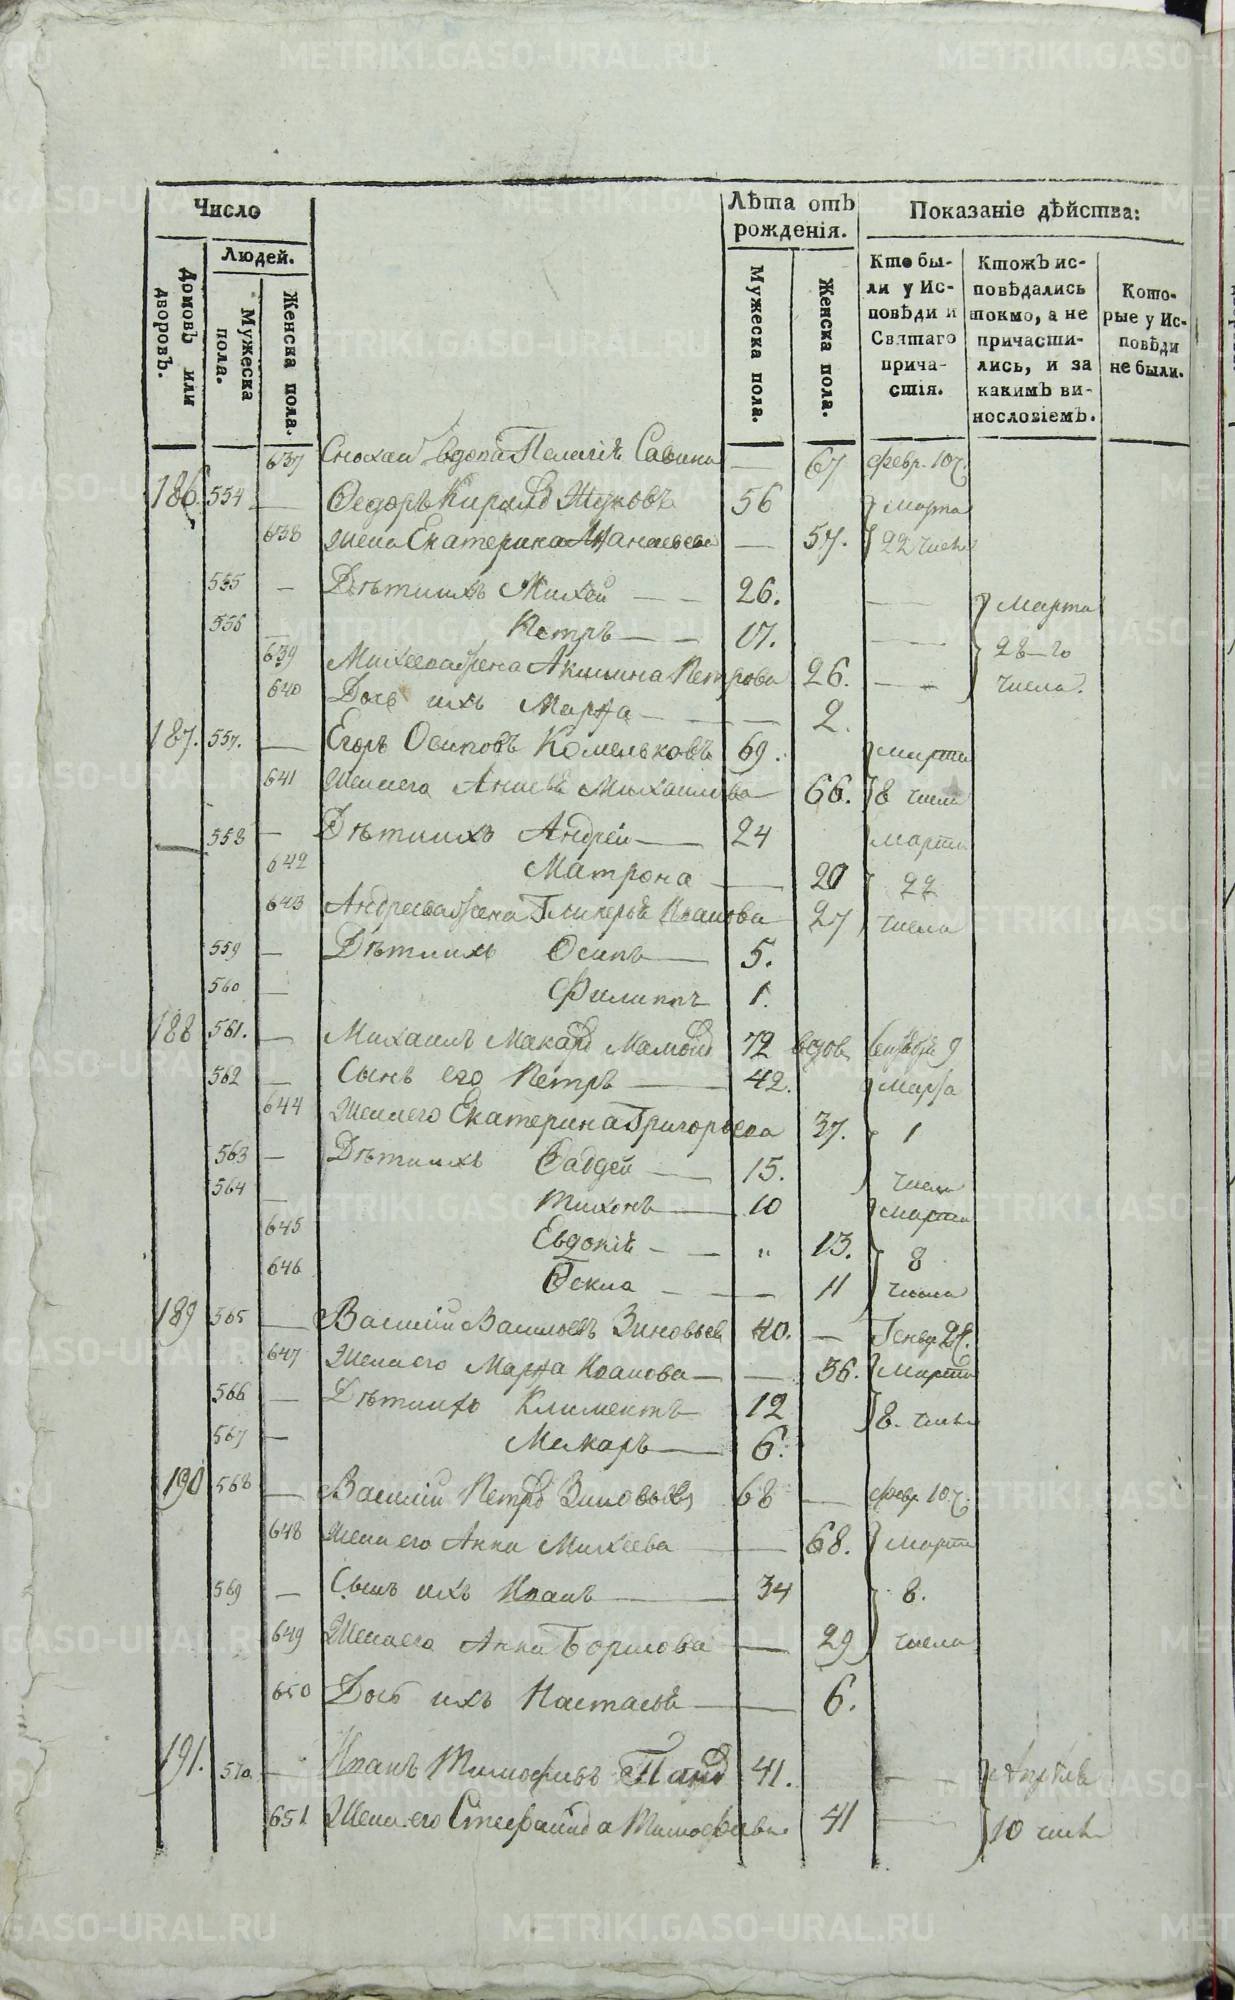 Число
Людей.
Домовъ или дворовъ.
Мужеска пола.
Женска пола.
Лѣта отъ рожденія.
Мужеска пола.
Женска пола.
Показаніе дѣйства:
Кто бы-
ли у Ис-
повѣди и
Святаго
прича-
стія.
Ктожъ ис-
повѣдались
токмо, а не
причасти-
лись, и за
какимъ ви-
нословіемъ.
Кото-
рые у Ис-
повѣди
не были.
637 Сноха вдова Пелагія Савина — 67 февр. 10 ч.
186. 554 — Ѳедоръ Кирилов Жуковъ 56 Марта
638 Жена Екатерина — 57. 22 числа
555 — Дѣти ихъ Михей — — 26. — Марта
556 Петръ — — 17. — 28-го
639 Михеева жена Акилина Петрова 26. — — числа.
640 Дочь ихъ Марѳа — — — 2.
187. 557. — Егоръ Осиповъ Комельковъ 69. Марта
641 Жена его Михаилова 66. 8 числа
558 — Дѣти ихъ Андрей — 24 Марта
642 Матрона — 20 22
643 Андреева жена Гликерья Иванова 27 числа
559 — Дѣти ихъ Осипъ — 5.
560 — Филиппъ 1.
188 561. — Михаилъ Макаров 72 вдов. 9
562 — Сынъ его Петръ — 42. Марта
644 Жена его Екатерина Григорьева 37. 1
563 — Дѣти ихъ Ѳаддей — 15. числа
564 — Тихонъ — 10 Марта
645 Евдокія — — „ 13. 8
646 Ѳекла — — — 11 числа
189 565 — Василій Васильевъ Зиновьев 40. — Генвр.
647 Жена его Марѳа Иванова — — 36. Марта
566 — Дѣти ихъ Климентъ 12 8. числа
567 — Макаръ — 6.
190 568 — Василій Петров Зиновьевъ 68 — февр. 10 ч.
648 Жена его Анна Михеева — 68. Марта
569 — Сынъ ихъ Иванъ — 34 8.
649 Жена его Анна Борисова — 29 числа
650 Дочь ихъ Настасья — 6.
191. 570. — Иванъ Тимофеевъ 41. — — Апрѣля
651 Жена его Стефанида Тимофеева 41 — 10 числа
METRIKI.GASO-URAL.RU